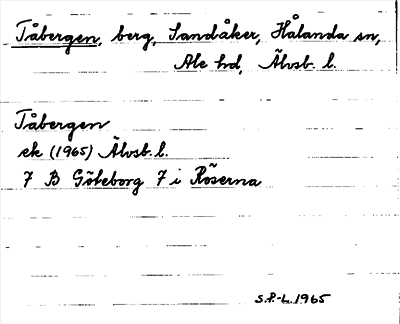 Tåbergen, berg, Sandåker, Hålanda sn,
Ale hd, Älvsb. l.
Tåbergen
ek (1965) Älvsb. l.
7 B Göteborg 7 i Röserna
S.P.-L. 1965